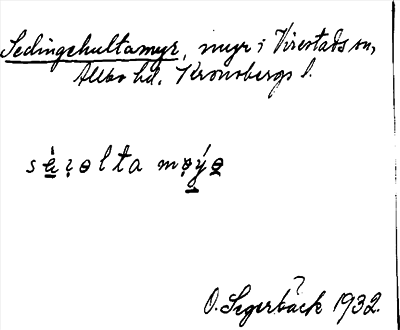 Sedingehultamyr, myr i Virestads sn,
Allbo hd. Kronobergs l.
O. Segerbäck 1932.